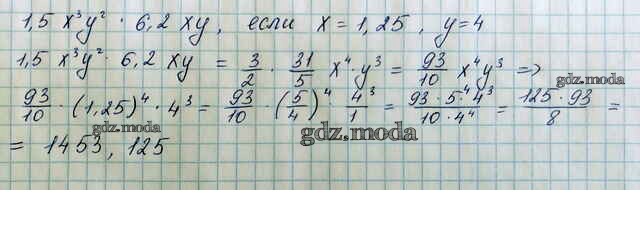 1,5 x³y² · 6,2 xy, если x = 1,25, y=4
1,5 x³y² · 6,2 xy = 3/2 · 31/5 x⁴·y³ = 93/10 x⁴y³ =>
gdz.moda
93/10 · (1,25)⁴ · 4³ = 93/10 · (5/4)⁴ · 4³/1 = 93·5⁴·4³/10·4⁴ = 125·93/8 =
gdz.moda
gdz.moda
= 1453,125